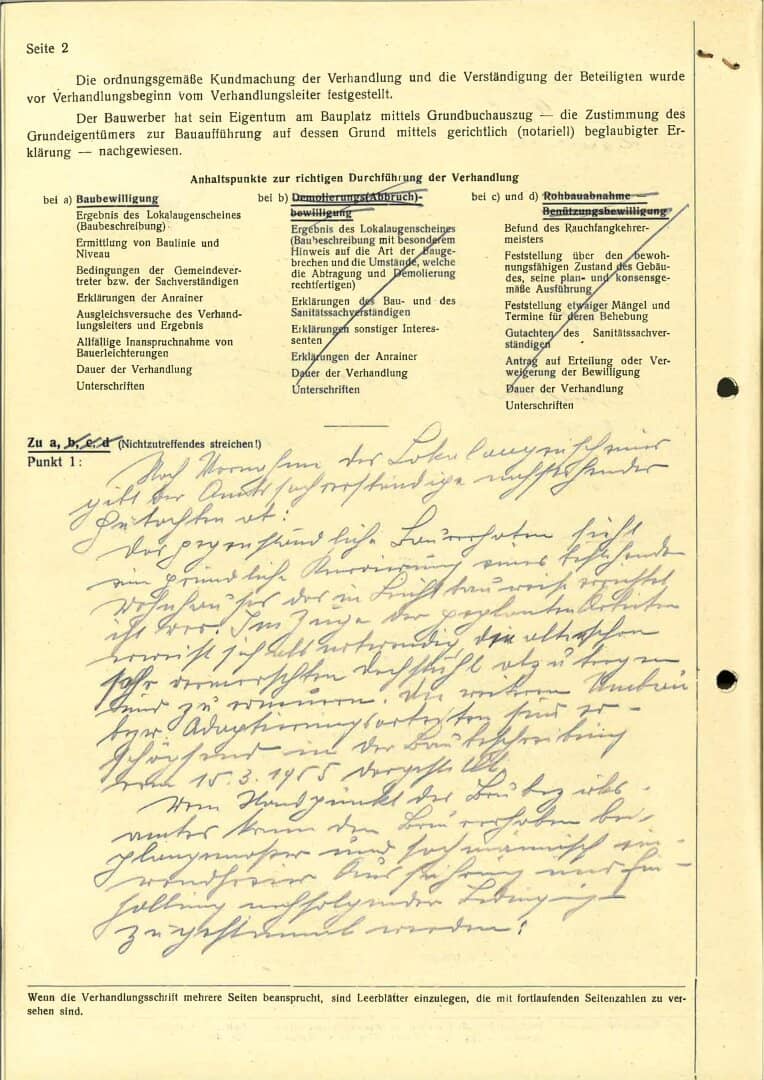 Seite 2
Die ordnungsgemäße Kundmachung der Verhandlung und die Verständigung der Beteiligten wurde
vor Verhandlungsbeginn vom Verhandlungsleiter festgestellt.
Der Bauwerber hat sein Eigentum am Bauplatz mittels Grundbuchauszug — die Zustimmung des
Grundeigentümers zur Bauaufführung auf dessen Grund mittels gerichtlich (notariell) beglaubigter Er-
klärung — nachgewiesen.
Anhaltspunkte zur richtigen Durchführung der Verhandlung
bei a) Baubewilligung
Ergebnis des Lokalaugenscheines
(Baubeschreibung)
Ermittlung von Baulinie und
Niveau
Bedingungen der Gemeindever-
treter bzw. der Sachverständigen
Erklärungen der Anrainer
Ausgleichsversuche des Verhand-
lungsleiters und Ergebnis
Allfällige Inanspruchnahme von
Bauerleichterungen
Dauer der Verhandlung
Unterschriften
bei b) Demolierungs(Abbruch)-
bewilligung
Ergebnis des Lokalaugenscheines
(Baubeschreibung mit besonderem
Hinweis auf die Art der Bauge-
brechen und die Umstände, welche
die Abtragung und Demolierung
rechtfertigen)
Erklärungen des Bau- und des
Sanitätssachverständigen
Erklärungen sonstiger Interes-
senten
Erklärungen der Anrainer
Dauer der Verhandlung
Unterschriften
bei c) und d) Rohbauabnahme —
Benützungsbewilligung
Befund des Rauchfangkehrer-
meisters
Feststellung über den bewoh-
nungsfähigen Zustand des Gebäu-
des, seine plan- und konsensge-
mäße Ausführung
Feststellung etwaiger Mängel und
Termine für deren Behebung
Gutachten des Sanitätssachver-
ständigen
Antrag auf Erteilung oder Ver-
weigerung der Bewilligung
Dauer der Verhandlung
Unterschriften
Zu a, b, c, d (Nichtzutreffendes streichen!)
Punkt 1: Nach Vornahme des Lokalaugenscheines
gibt der Amtssachverständige nachstehendes
Gutachten ab:
Das gegenständliche Bauvorhaben sieht
eine gründliche Renovierung eines bestehenden
Wohnhauses das in Leichtbauweise errichtet
ist vor. Im Zuge der geplanten Arbeiten
erweist sich als notwendig den alten schon
sehr vermorschten Dachstuhl abzutragen
und zu erneuern. Die weiteren Umbau
bzw. Adaptierungsarbeiten sind er-
schöpfend in der Baubeschreibung
vom 15.3.1955 dargestellt.
Vom Standpunkt des Baubezirks-
amtes kann dem Bauvorhaben bei
plangemässer und fachmännisch ein-
wandfreier Ausführung und Ein-
haltung nachfolgender
zugestimmt werden:
Wenn die Verhandlungsschrift mehrere Seiten beansprucht, sind Leerblätter einzulegen, die mit fortlaufenden Seitenzahlen zu ver-
sehen sind.